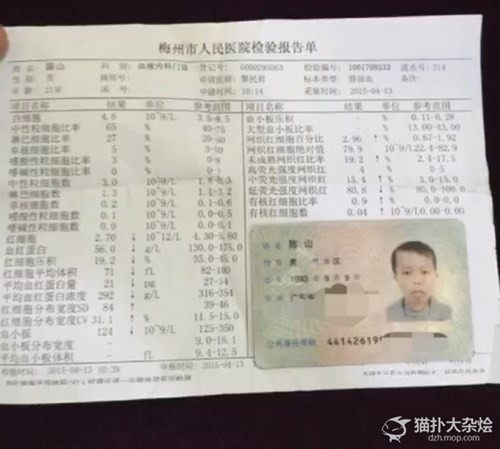 梅州市人民医院检验报告单
姓名 陈山 科别 血液内科门诊 登记号 0000295063 检验编号 1001700533 流水号 214
性别 男 病床号: 申请医师 黎民君 标本类型 静脉血
年龄 21岁 申请时间 10:14 采集时间 2015-04-13
项目名称 结果 单位 参考范围 项目名称 结果 单位 参考范围
白细胞 4.6 10^9/L 3.5-9.5 血小板压积 0.11-0.28
中性粒细胞比率 65 % 40-75 大型血小板比率 13.00-43.00
淋巴细胞比率 27 % 20-50 网织红细胞百分比 2.96 ↑ % 0.67-1.92
单核细胞比率 5 % 网织红细胞绝对值 79.9 10^9/L 22.4-82.9
嗜酸性粒细胞比率 3 % 未成熟网织红比率 19.2 ↑ % 2.4-17.5
嗜碱性粒细胞比率 0 % 0-1 高荧光强度网织红 4 % 0-5
中性粒细胞数 3.0 10^9/L 1.8-6.3 中荧光强度网织红 15.4 ↑ % 3.0-15.0
淋巴细胞数 1.3 10^9/L 低荧光强度网织红 80.8 ↓ % 85.0-100.0
单核细胞数 0.2 10^9/L 0.1-0.6 有核红细胞比率 0.9 ↑ %
嗜酸性粒细胞数 0.1 10^9/L 有核红细胞数 0.04 ↑ 10^9/L 0.00-0.00
嗜碱性粒细胞数 0.0 10^9/L
红细胞 2.70 ↓ 10^12/L 4.30-5.80
血红蛋白 56.0 ↓ g/L 130.0-175.0
红细胞压积 19.2 ↓ % 35.0-45.0
红细胞平均体积 71 ↓ fL 82-100
平均血红蛋白量 21 ↓ pg 27-34
平均血红蛋白浓度 292 ↓ g/L 316-354
红细胞分布宽度SD 84 ↑ fL 39-46
红细胞分布宽度CV 31.1 ↑ % 11.5-15.0
血小板 124 ↓ 10^9/L 125-350
血小板分布宽度 9.0-18.1
平均血小板体积 fL 9.4-12.5
2015-04-13 10:39 审核时间 2015-04-13
姓名 陈山
性别 男 民族 汉
出生 1993年9月9日
住址 广东省
公民身份号码 44142619
猫扑大杂烩
dzh.mop.com